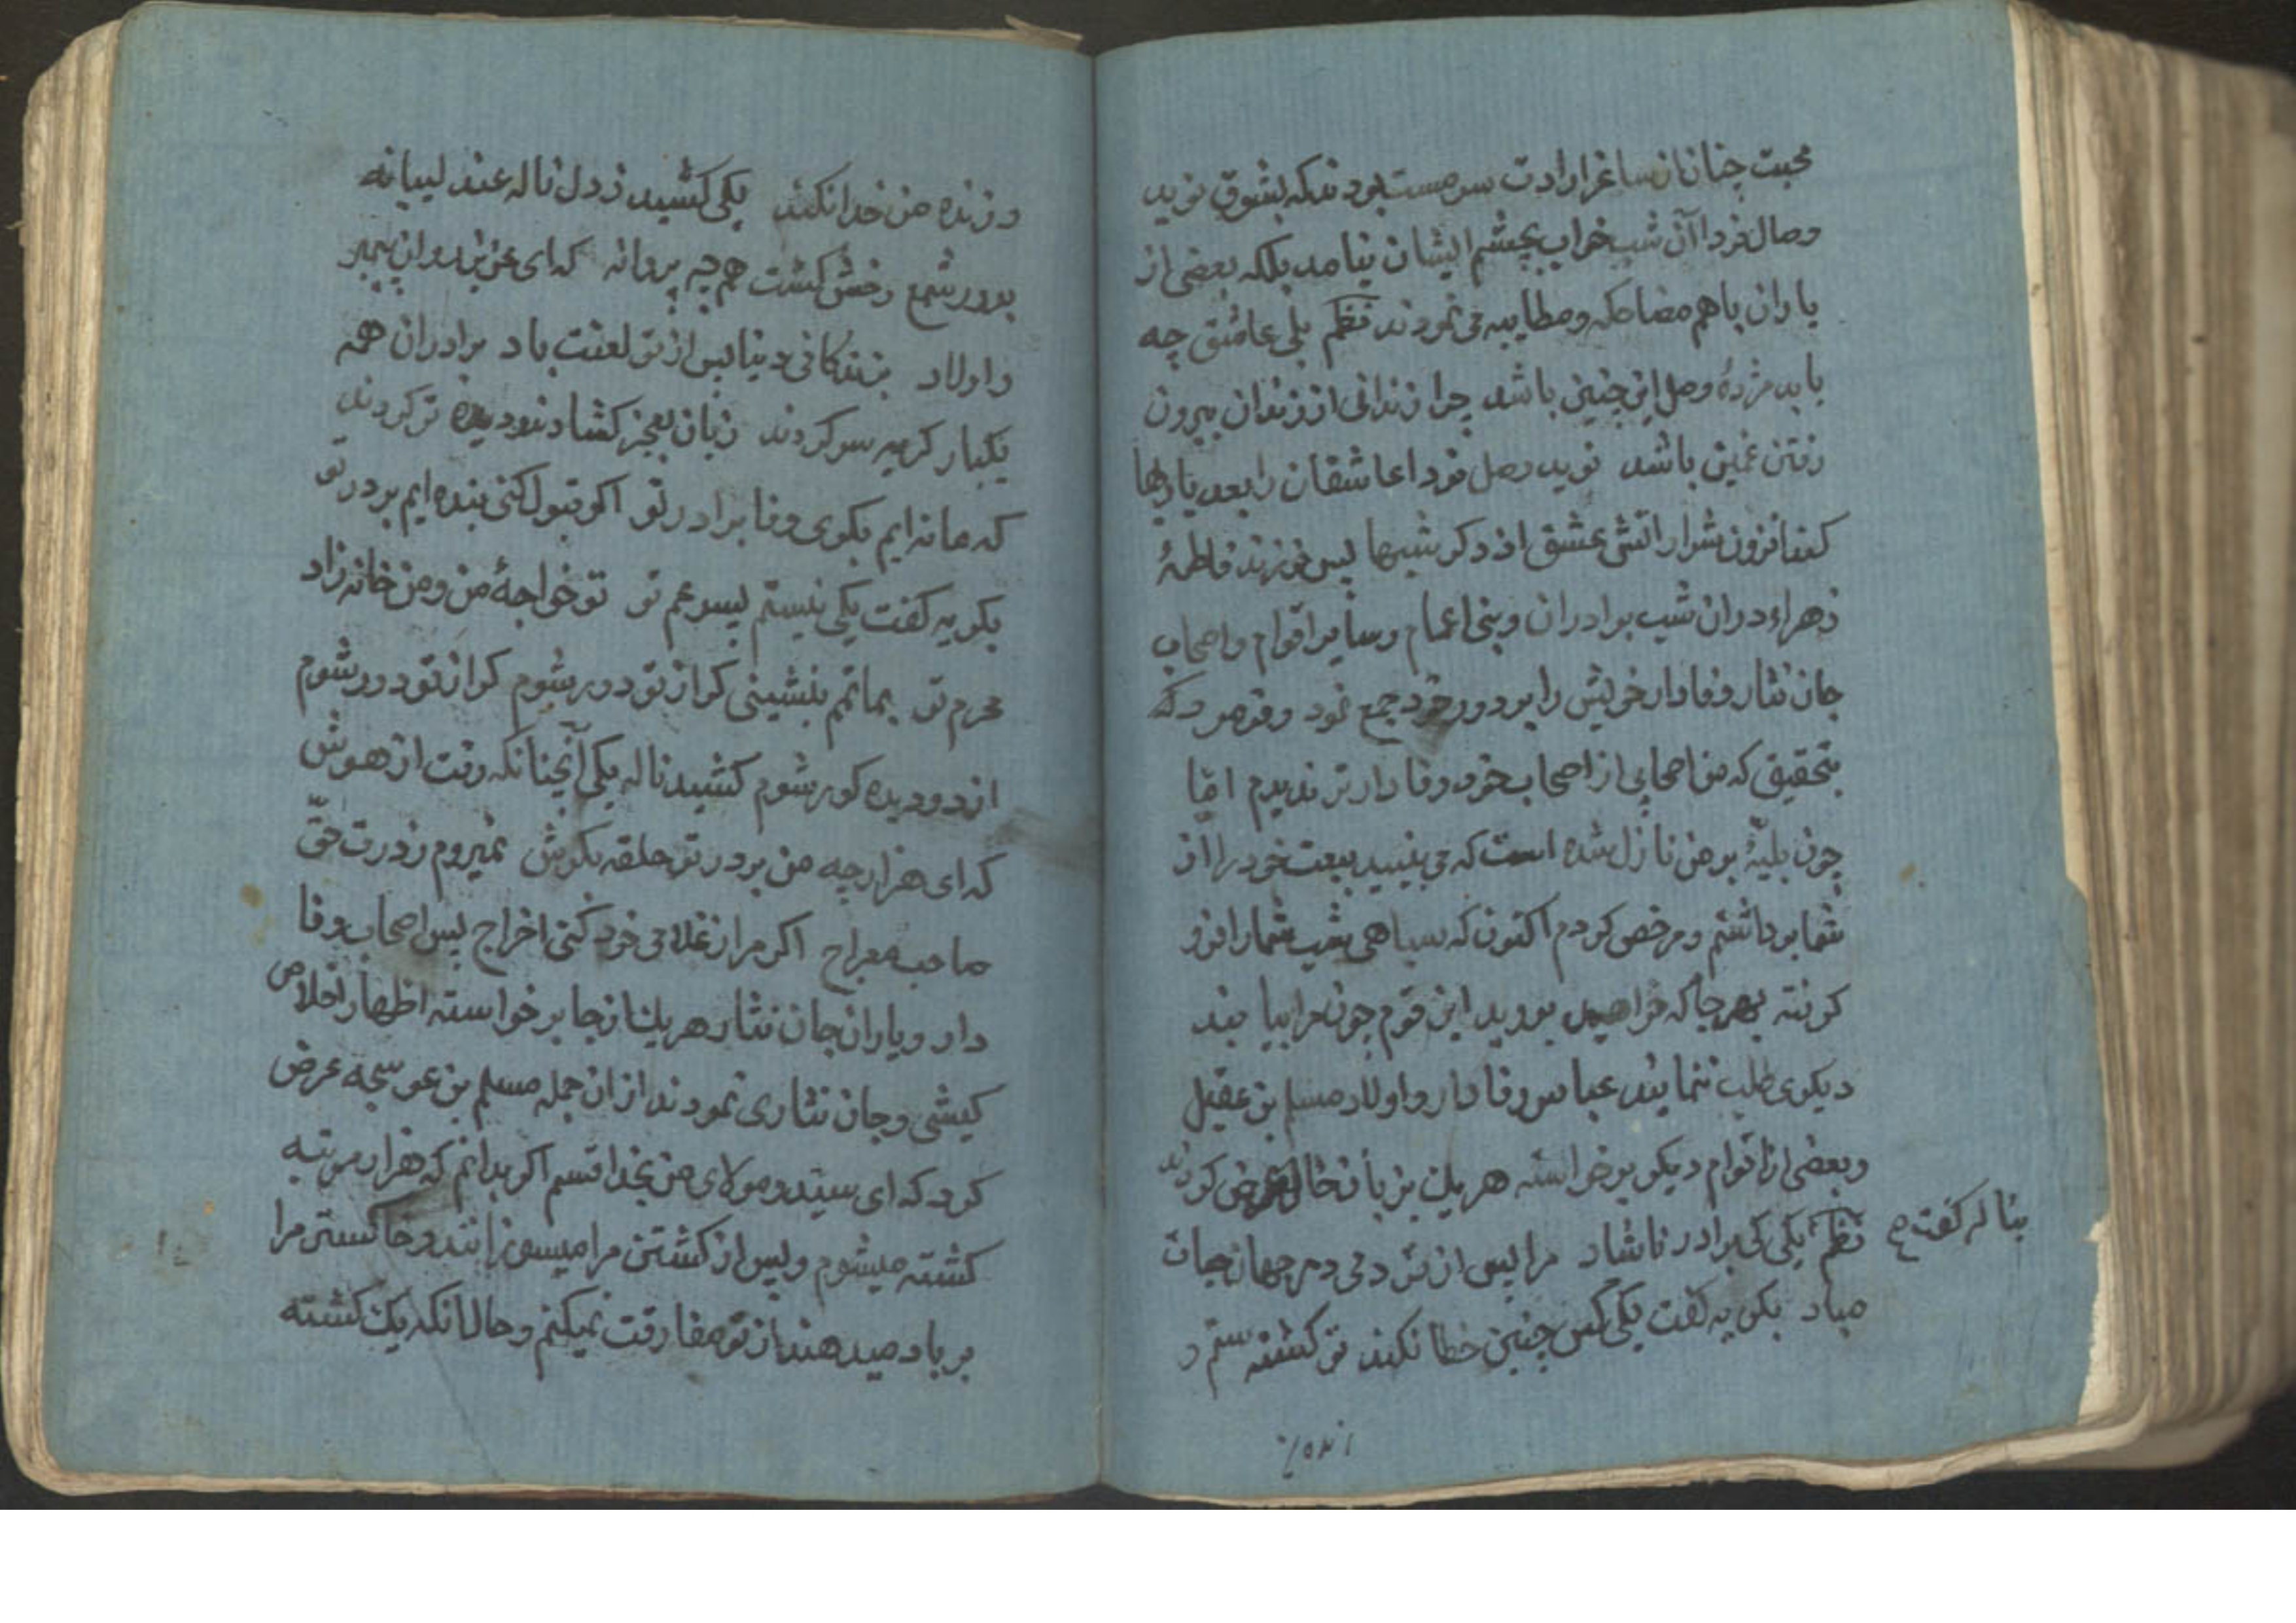 محبت چنان از ساغر ارادت سرمست بودند که بشوق نوید
وصال فردا آن شب خواب بچشم ایشان نیامد بلکه بعضی از
یاران باهم مضاحکه و مطایبه می نمودند نظم بلی عاشق چه
یابد مژدۀ وصل این چنین باشد چرا زندانی از زندان بیرون
رفتن غمین باشد نوید وصل فردا عاشقان را بعد یاربها
کند افزون شرار اتش عشق از دگر شبها پس فرزند فاطمۀ
زهراء در ان شب برادران و بنی اعمام و سایر اقوام و اصحاب
جان نثار وفادار خویش را بر دور خود جمع نمود و فرمود که
بتحقیق که من اصحابی از اصحاب خود وفادارتر ندیدم امّا
چون بلیّۀ بر من نازل شده است که می بینید بیعت خود را از
شما برداشتم و مرخص کردم اکنون که سیاهی شب شما را فرو
گرفته بهرجا که خواهید بروید این قوم چون مرا بیابند
دیگری طلب ننمایند عباس وفادار و اولاد مسلم بن عقیل
و بعضی از اقوام دیگر برخواسته هریك بزبان حال عرض کردند
نظم یکی کی برادر ناشاد مرا پس از تو دمی در جهان حیات
بناله گفت
مباد بگریه گفت یکی کس چنین خطا نکند تو کشتۀ ستم و
و زنده من خدا نکند یکی کشید ز دل ناله عندلیبانه
بدور شمع رخش گشت همچه پروانه که ای عزیز دو ان پیمبر
و اولاد بزندگانی دنیا پس از تو لعنت باد برادران همه
یکبار گریه سر کردند زبان بعجز گشادند و دیده تر کردند
که ما نه ایم بکوی وفا برادر تو اگر قبول کنی بنده ایم بر در تو
بگریه گفت یکی نیستم پسر عم تو تو خواجۀ من و من خانه زاد
محرم تو بماتم بنشینی گر از تو دور شوم گر از تو دور شوم
از دو دیده کور شوم کشید ناله یکی آنچنانکه رفت از هوش
که ای هزار چه من بر در تو حلقه بگوش نمیروم ز درت حقّ
صاحب معراج اگر مرا ز غلامی خود کنی اخراج پس اصحاب وفا
دار و یاران جان نثار هریك از جا برخواسته اظهار اخلاص
کیشی و جان نثاری نمودند از ان جمله مسلم بن عوسجه عرض
کرد که ای سیّد و مولای من بخدا قسم اگر بدانم که هزار مرتبه
کشته میشوم و پس از کشتن مرا میسوزانند و خاکستر مرا
بر باد میدهند از تو مفارقت نمیکنم و حال آنکه یك کشته